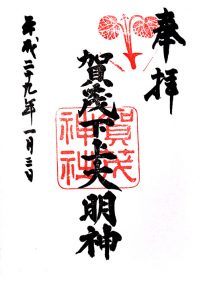 奉拝
賀茂下上大明神
賀茂
神社
平成二十九年一月三日